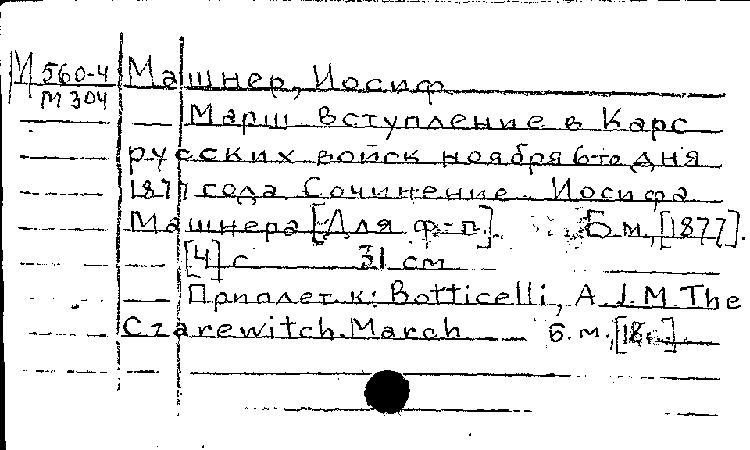 М 560-4 Машнер, Иосиф
М 304
Марш Вступление в Карс
русских войск ноября 6-го дня
1877 года Сочинение Иосифа
Машнера [Для ф-п]. Б.м., [1877].
[4] с 31 см
Приплет. к: Botticelli, A. J. M. The
Czarewitch March Б.м.,